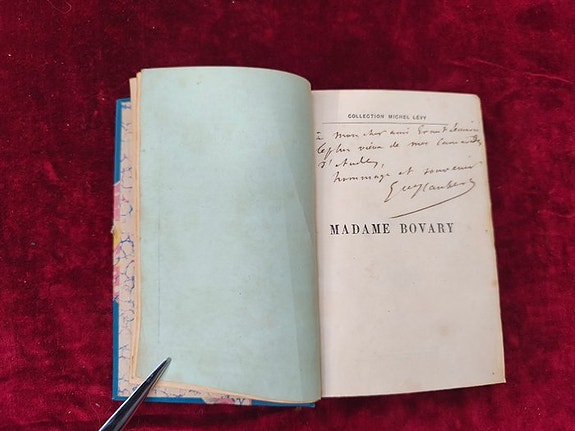 COLLECTION MICHEL LÉVY
à mon cher ami
le plus vieux de mes camarades
d'études,
hommage et souvenir
Gve Flaubert
MADAME BOVARY